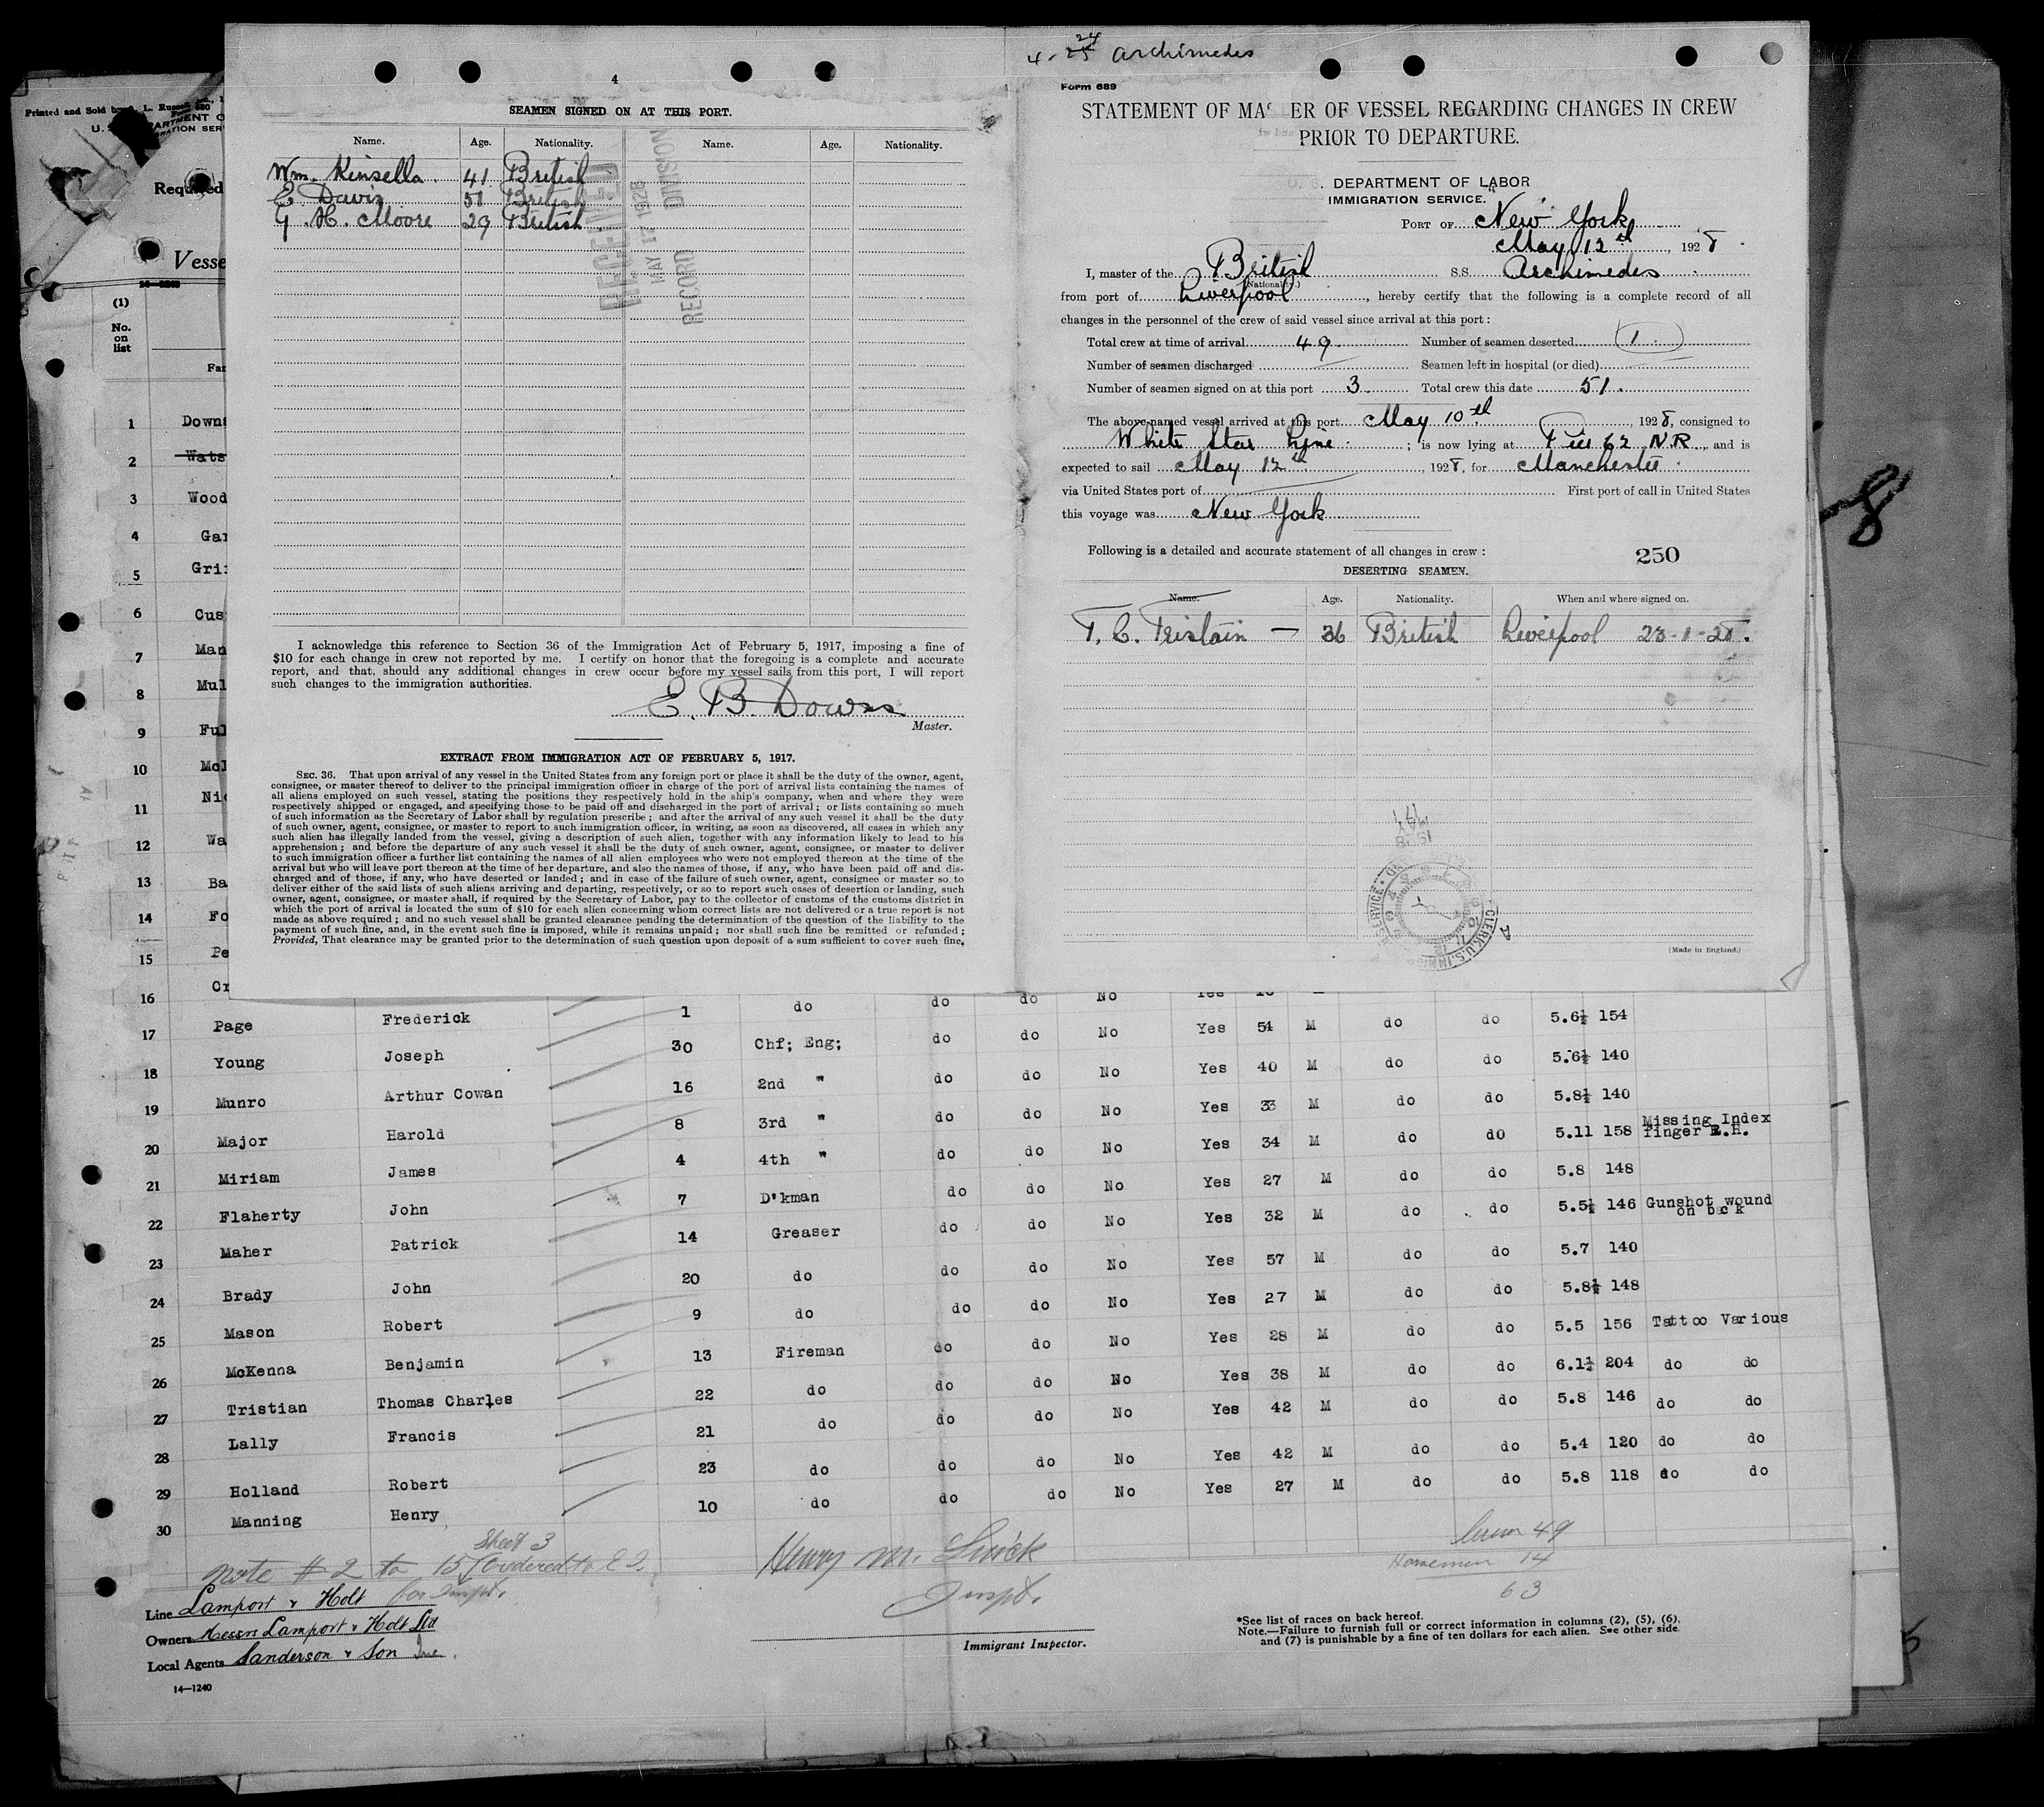 4 - 25 24 Archimedes
4
SEAMEN SIGNED ON AT THIS PORT.
Name. Age. Nationality. Name. Age. Nationality.
Wm. Kinsella 41 British
E Davis 51 British
G. H. Moore 29 British
RECEIVED
MAY 17 1928
RECORD DIVISION
I acknowledge this reference to Section 36 of the Immigration Act of February 5, 1917, imposing a fine of
$10 for each change in crew not reported by me. I certify on honor that the foregoing is a complete and accurate
report, and that, should any additional changes in crew occur before my vessel sails from this port, I will report
such changes to the immigration authorities.
E. B. Downs
Master.
EXTRACT FROM IMMIGRATION ACT OF FEBRUARY 5, 1917.
SEC. 36. That upon arrival of any vessel in the United States from any foreign port or place it shall be the duty of the owner, agent,
consignee, or master thereof to deliver to the principal immigration officer in charge of the port of arrival lists containing the names of
all aliens employed on such vessel, stating the positions they respectively hold in the ship's company, when and where they were
respectively shipped or engaged, and specifying those to be paid off and discharged in the port of arrival; or lists containing so much
of such information as the Secretary of Labor shall by regulation prescribe; and after the arrival of any such vessel it shall be the duty
of such owner, agent, consignee, or master to report to such immigration officer, in writing, as soon as discovered, all cases in which any
such alien has illegally landed from the vessel, giving a description of such alien, together with any information likely to lead to his
apprehension; and before the departure of any such vessel it shall be the duty of such owner, agent, consignee, or master to deliver
to such immigration officer a further list containing the names of all alien employees who were not employed thereon at the time of the
arrival but who will leave port thereon at the time of her departure, and also the names of those, if any, who have been paid off and dis-
charged and of those, if any, who have deserted or landed; and in case of the failure of such owner, agent, consignee or master so to
deliver either of the said lists of such aliens arriving and departing, respectively, or so to report such cases of desertion or landing, such
owner, agent, consignee, or master, shall, if required by the Secretary of Labor, pay to the collector of customs of the customs district in
which the port of arrival is located the sum of $10 for each alien concerning whom correct lists are not delivered or a true report is not
made as above required; and no such vessel shall be granted clearance pending the determination of the question of the liability to the
payment of such fine, and, in the event such fine is imposed, while it remains unpaid; nor shall such fine be remitted or refunded;
Provided, That clearance may be granted prior to the determination of such question upon deposit of a sum sufficient to cover such fine.
Form 689
STATEMENT OF MA ER OF VESSEL REGARDING CHANGES IN CREW
PRIOR TO DEPARTURE.
U. S. DEPARTMENT OF LABOR
IMMIGRATION SERVICE.
PORT OF New York
May 12th, 1928.
I, master of the British S.S. Archimedes
(Nationality.)
from port of Liverpool, hereby certify that the following is a complete record of all
changes in the personnel of the crew of said vessel since arrival at this port:
Total crew at time of arrival 49. Number of seamen deserted 1.
Number of seamen discharged Seamen left in hospital (or died)
Number of seamen signed on at this port 3. Total crew this date 51.
The above-named vessel arrived at this port May 10th, 1928, consigned to
White Star Line; is now lying at Pier 62 N.R., and is
expected to sail May 12th, 1928, for Manchester.
via United States port of First port of call in United States
this voyage was New York
Following is a detailed and accurate statement of all changes in crew:
250
DESERTING SEAMEN.
Name. Age. Nationality. When and where signed on.
T. C. Tristain — 36 British Liverpool 23-1-28.
(Made in England.)
Printed and Sold by L. Russ
Required
Vesse
(1)
No. on list
Fam
1 Downs
2 Wats
3 Wood
4 Gar
5 Gri
6 Cus
7 Man
8 Mul
9 Ful
10 McI
11 Nic
12 Wa
13 Ba
14 Fo
15 Pe
16 Cr
17 Page Frederick 1 do do do No Yes 54 M do do 5.6½ 154
18 Young Joseph 30 Chf; Eng; do do No Yes 40 M do do 5.6½ 140
19 Munro Arthur Cowan 16 2nd " do do No Yes 33 M do do 5.8½ 140
20 Major Harold 8 3rd " do do No Yes 34 M do do 5.11 158 Missing Index finger R.H.
21 Miriam James 4 4th " do do No Yes 27 M do do 5.8 148
22 Flaherty John 7 D'kman do do No Yes 32 M do do 5.5½ 146 Gunshot wound on back
23 Maher Patrick 14 Greaser do do No Yes 57 M do do 5.7 140
24 Brady John 20 do do do No Yes 27 M do do 5.8½ 148
25 Mason Robert 9 do do do No Yes 28 M do do 5.5 156 Tattoo Various
26 McKenna Benjamin 13 Fireman do do No Yes 38 M do do 6.1½ 204 do do
27 Tristian Thomas Charles 22 do do do No Yes 42 M do do 5.8 146 do do
28 Lally Francis 21 do do do No Yes 42 M do do 5.4 120 do do
29 Holland Robert 23 do do do No Yes 27 M do do 5.8 118 do do
30 Manning Henry 10 do do do No
Sheet 3
Note # 2 to 15 ordered to E I.
for Inspt.
Henry M.
Inspt.
49
Horsemen 14
63
Line Lamport & Holt
Owners Messrs Lamport & Holt Ltd
Local Agents Sanderson & Son Inc.
14—1240
Immigrant Inspector.
*See list of races on back hereof.
Note.—Failure to furnish full or correct information in columns (2), (5), (6),
and (7) is punishable by a fine of ten dollars for each alien. See other side